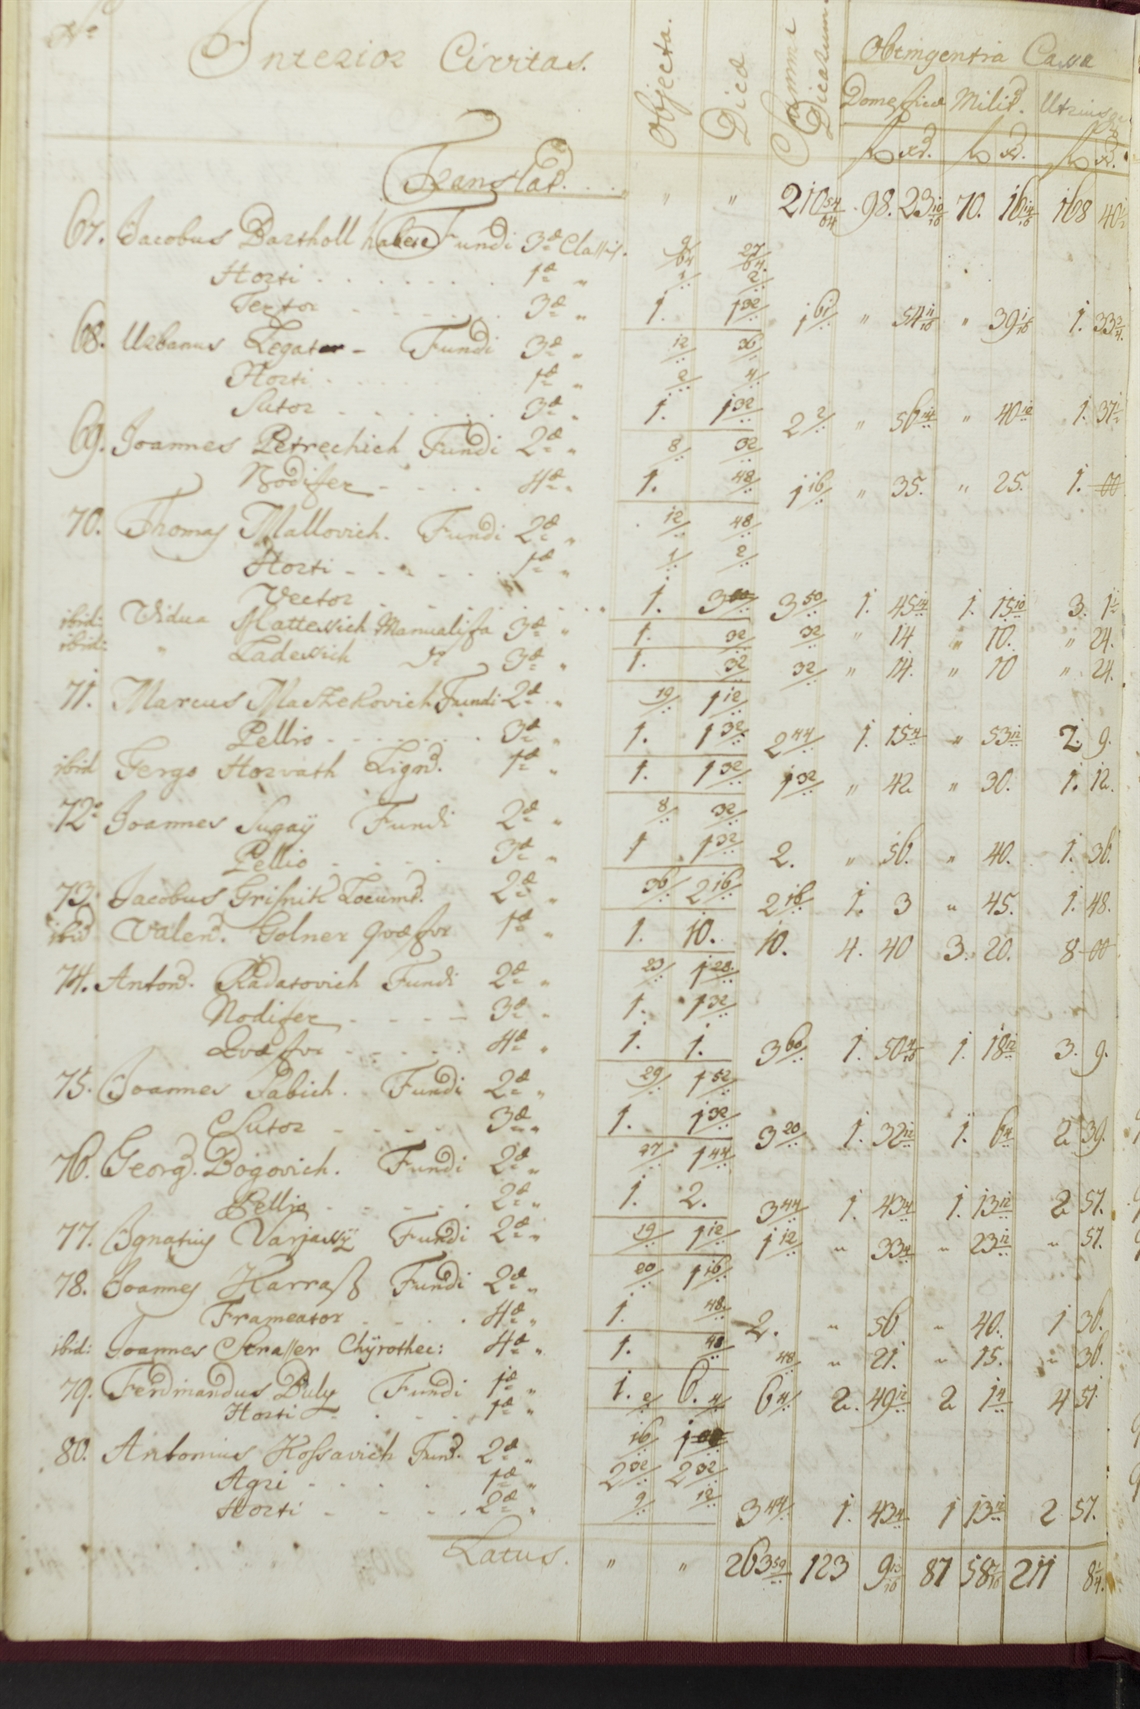 Nro Interior Civitas. Objecta. Dica Summa Dicarum Obtingentia Cassa
Domestica Milit. Utriusque
f xr. f xr. f xr.
Translat. . . . " " 210 54/64 98. 23 10/16 70. 16 14/16 168 40
67. Jacobus Bartholl habere Fundi 3æ Classis. 9/64 27/64
Horti . . . . . . . 1æ " 1/.. 2/..
Textor . . . . . . 3æ " 1. 1 32/.. 1 61/.. " 54 11/16 " 39 1/16 1. 33 3/4
68. Urbanus Legater - Fundi 3æ " 12/.. 36/..
Horti . . . . . . 1æ " 2/.. 4/..
Sutor . . . . . . 3æ " 1. 1 32/.. 2 2/.. " 56 14/.. " 40 12/.. 1. 37
69. Joannes Petrechich Fundi 2æ " 8/.. 32/..
Nodifex - . . . . 4æ " 1. 48/.. 1 16/.. " 35. " 25. 1. 00
70. Thomas Mallovich. Fundi 2æ " 12/.. 48/..
Horti - . . . . . 1æ " 1/.. 2/..
Vector . . . . . . . 1. 3 3 50/.. 1. 45 14/.. 1. 15 10/.. 3. 1
ibid: Vidua Mattessich Manualista 3æ " 1. 32/.. 32/.. " 14 " 10. " 24.
ibid: " Ladessich 3æ " 1. 32/.. 32/.. " 14. " 10 " 24.
71. Marcus Mackekovich Fundi 2æ " 19/.. 1 12/..
Pellio - . . . . . 3æ " 1. 1 32/.. 2 44/.. 1. 15 4/.. " 53 12/.. 2. 9.
ibid Gergo Horvath Lign. 1æ " 1. 1 32/.. 1 32/.. " 42 " 30. 1. 12.
72. Joannes Sugaÿ Fundi 2æ " 8/.. 32/..
Pellio . . . . 3æ " 1 1 32/.. 2. " 56. " 40. 1. 36.
73. Jacobus Grisnik Locumt. 2æ " 36/.. 2 16/.. 2 16/.. 1. 3 " 45. 1. 48.
ibid Valent. Golner Quæstor 1æ " 1. 10. 10. 4. 40 3. 20. 8 00
74. Anton. Radasovich Fundi 2æ " 23/.. 1 28/..
Nodifex - - - - 3æ " 1. 1 32/..
Quæstor . . . . 4æ " 1. 1. 3 60/.. 1. 50 4/16 1. 18 12/.. 3. 9.
75. Joannes Sabich. Fundi 2æ " 29/.. 1 52/..
Sutor - . . . . 3æ " 1. 1 32/.. 3 20/.. 1. 32 12/.. 1. 6 4/.. 2 39.
76. Georg. Bogovich. Fundi 2æ " 27/.. 1 44/..
Pellio . . . . . 2æ " 1. 2. 3 44/.. 1. 43 4/.. 1. 13 12/.. 2 57.
77. Ignatius Varjassÿ Fundi 2æ " 19/.. 1 12/.. 1 12/.. " 33 4/.. " 23 12/.. " 57.
78. Joannes Harraß Fundi 2æ " 20/.. 1 16/..
Frameator . . . 4æ " 1. 48/.. 2. " 56 " 40. 1 36.
ibid: Joannes Strasser Chÿrothec: 4æ " 1. 48/.. 48/.. " 21. " 15. " 36.
79. Ferdinandus Buly Fundi 1æ " 1. 6.
Horti - . . . 1æ " 2/.. 4/.. 6 4/.. 2. 49 12/.. 2 1 4/.. 4 51
80. Antonius Kossavich Fund. 2æ " 16/.. 1
Agri - . . . . . 1æ " 2 32/.. 2 32/..
Horti . . . . . 2æ " 9/.. 12/.. 3 44/.. 1. 43 4/.. 1 13 12/.. 2 57.
Latus. " " 263 59/.. 123 9 13/16 87 58 7/16 211 8 1/4.